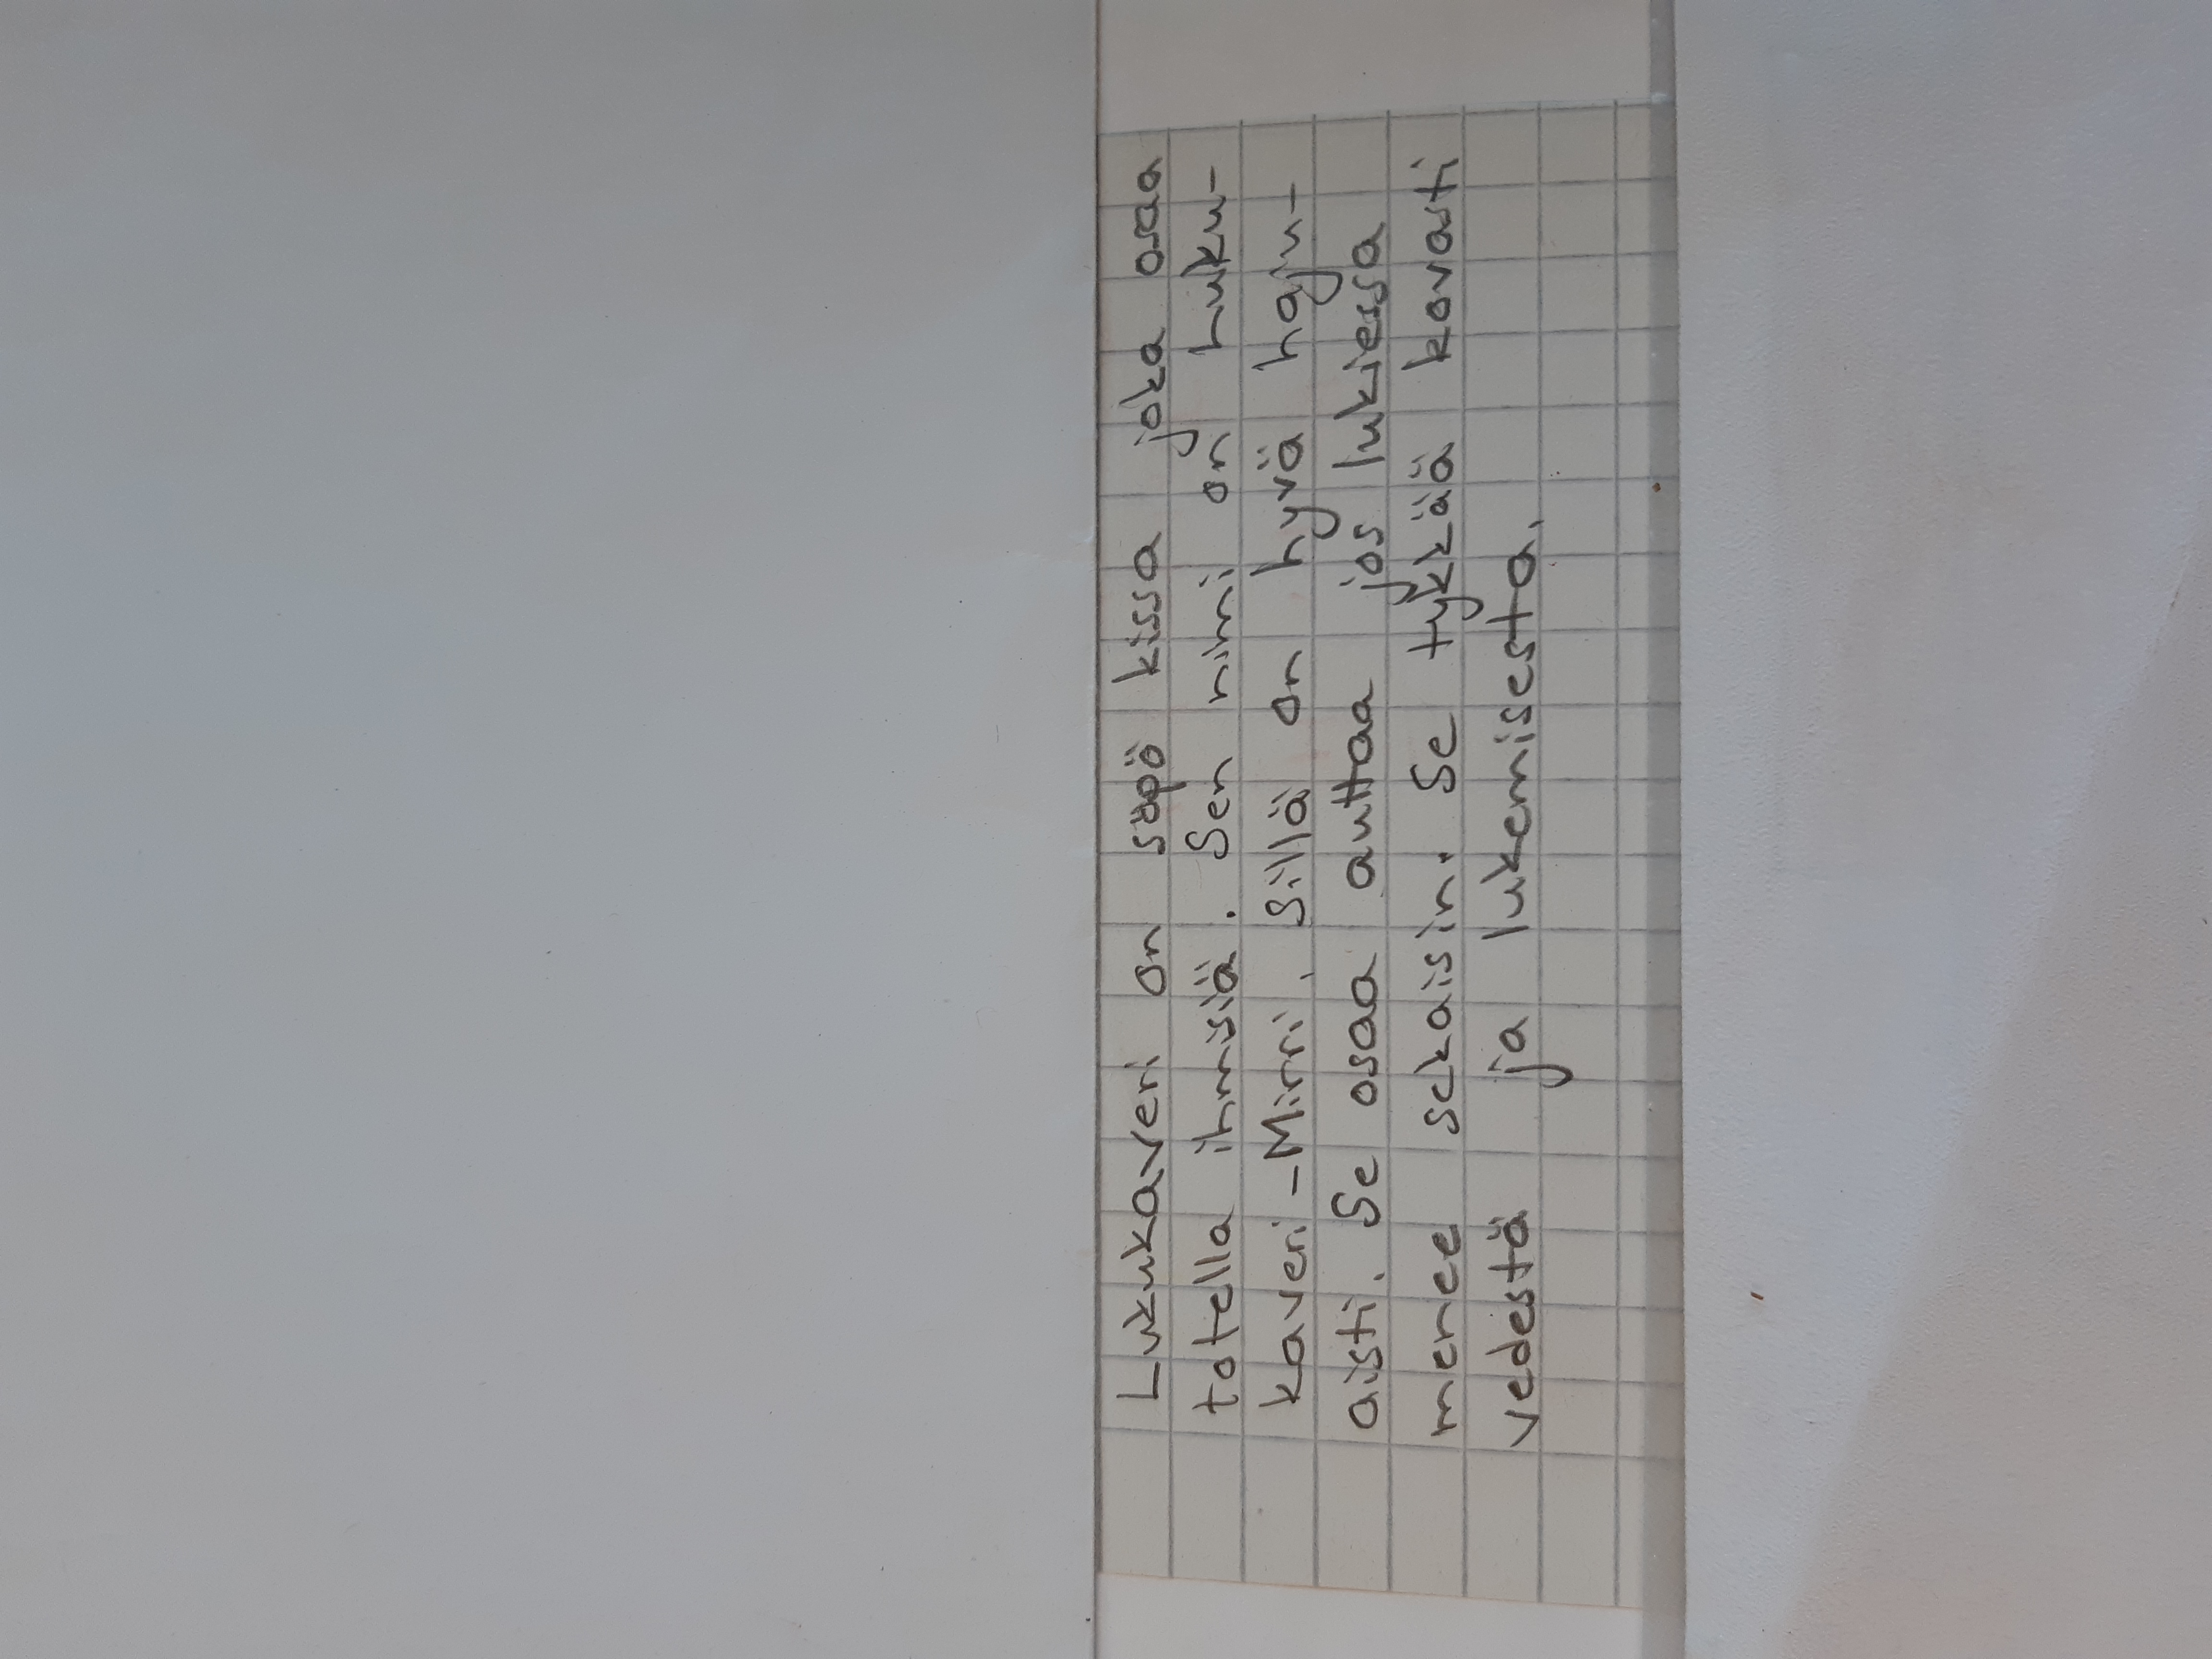 Lukukaveri on söpö kissa joka osaa
totella ihmisiä. Sen nimi on Luku-
kaveri-Mirri. Sillä on hyvä haju-
aisti. Se osaa auttaa jos lukiessa
menee sekaisin. Se tykkää kovasti
vedestä ja lukemisesta.